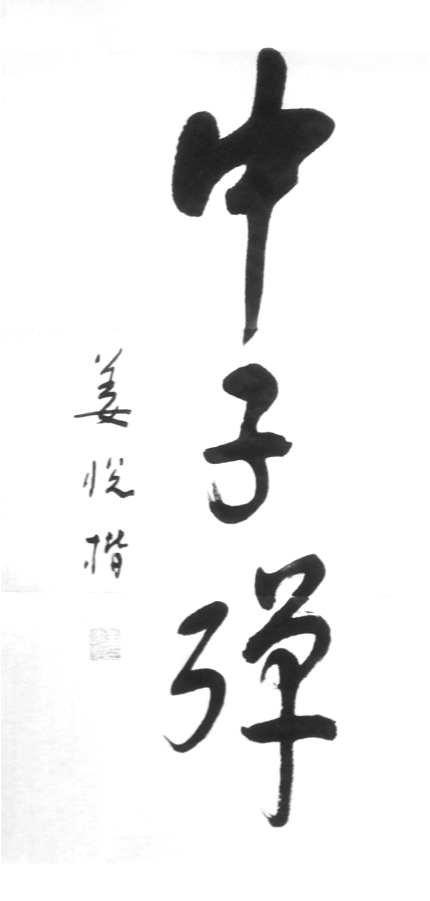 中子弹
姜悦楷